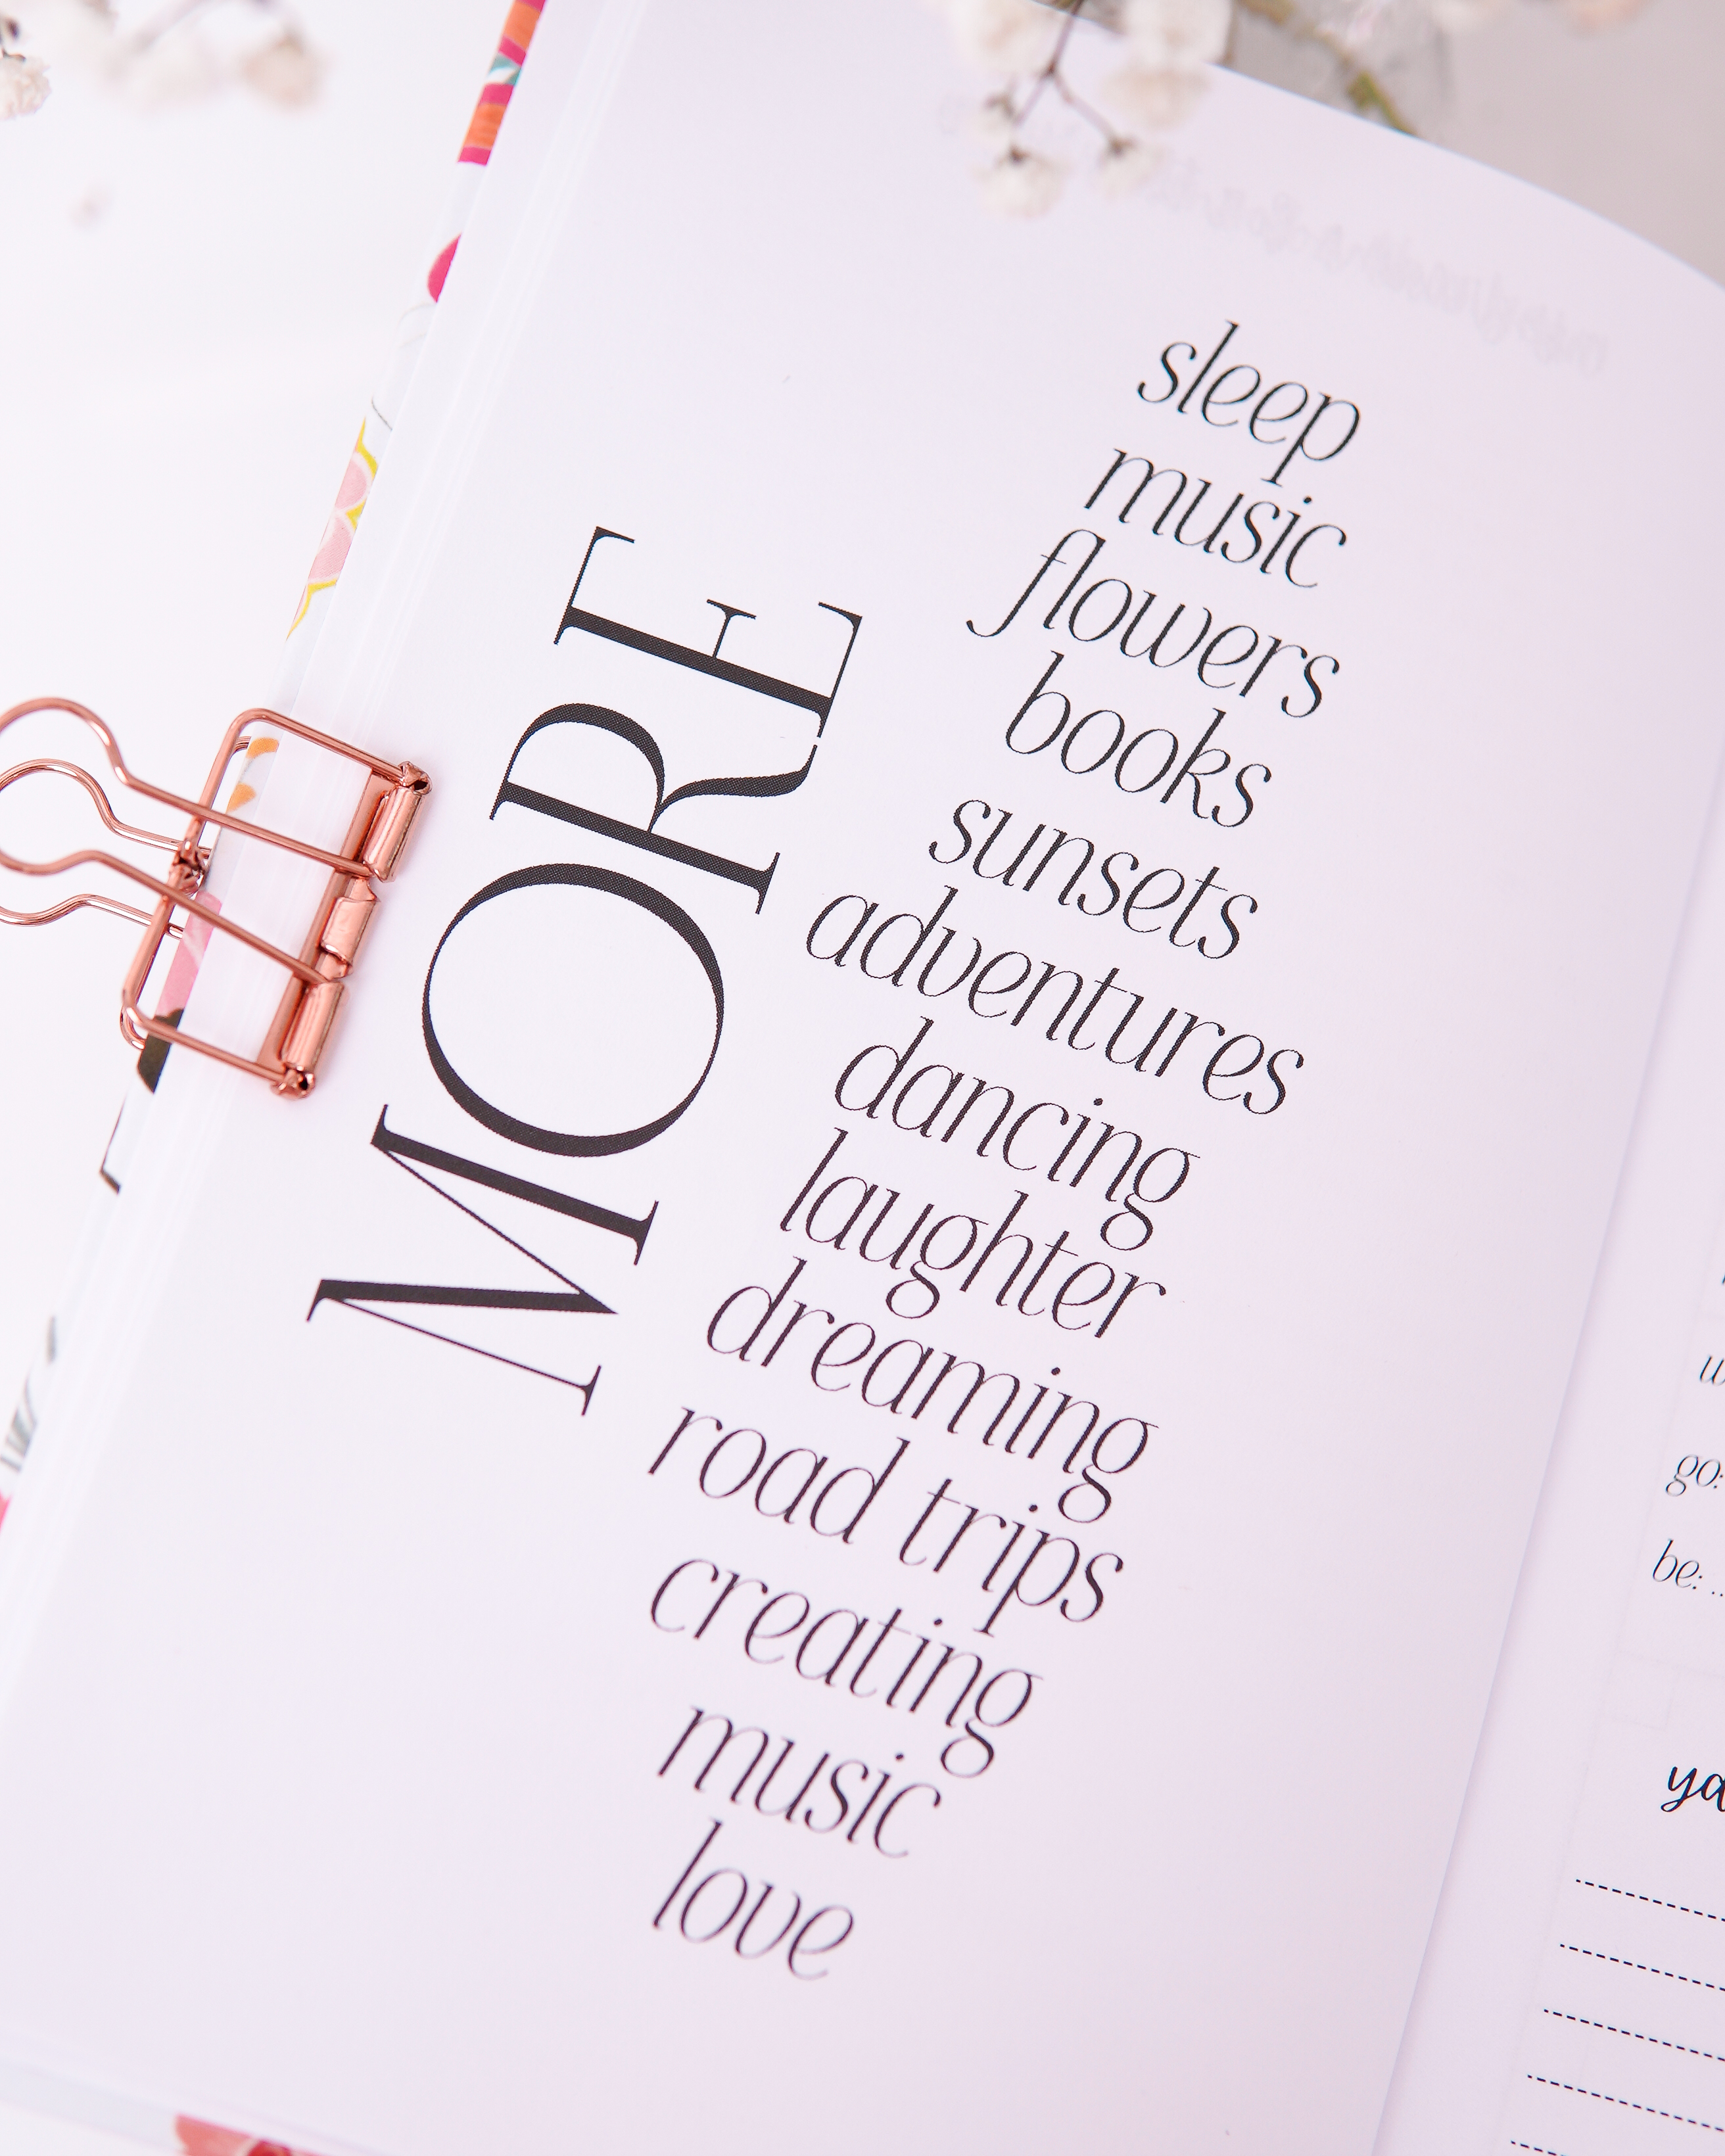 MORE
sleep
music
flowers
books
sunsets
adventures
dancing
laughter
dreaming
road trips
creating
music
love
go:
be: